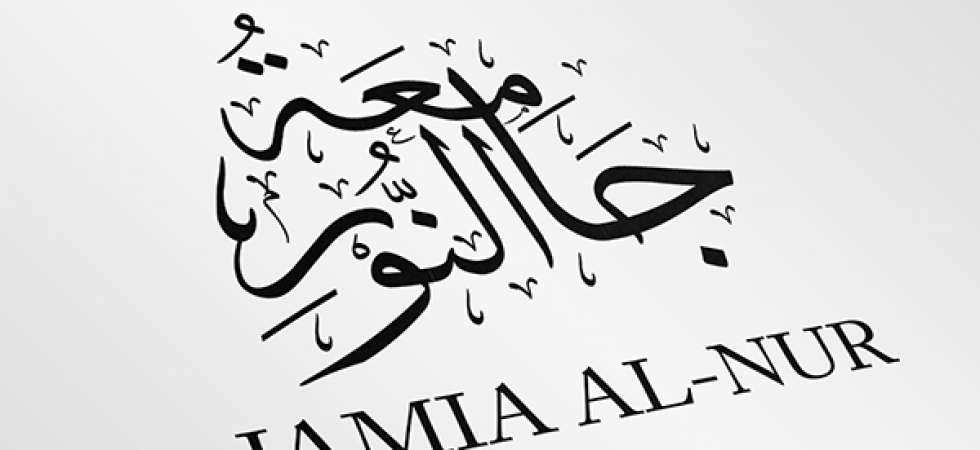 جَامِعَةُ
النُّورِ
JAMIA AL-NUR